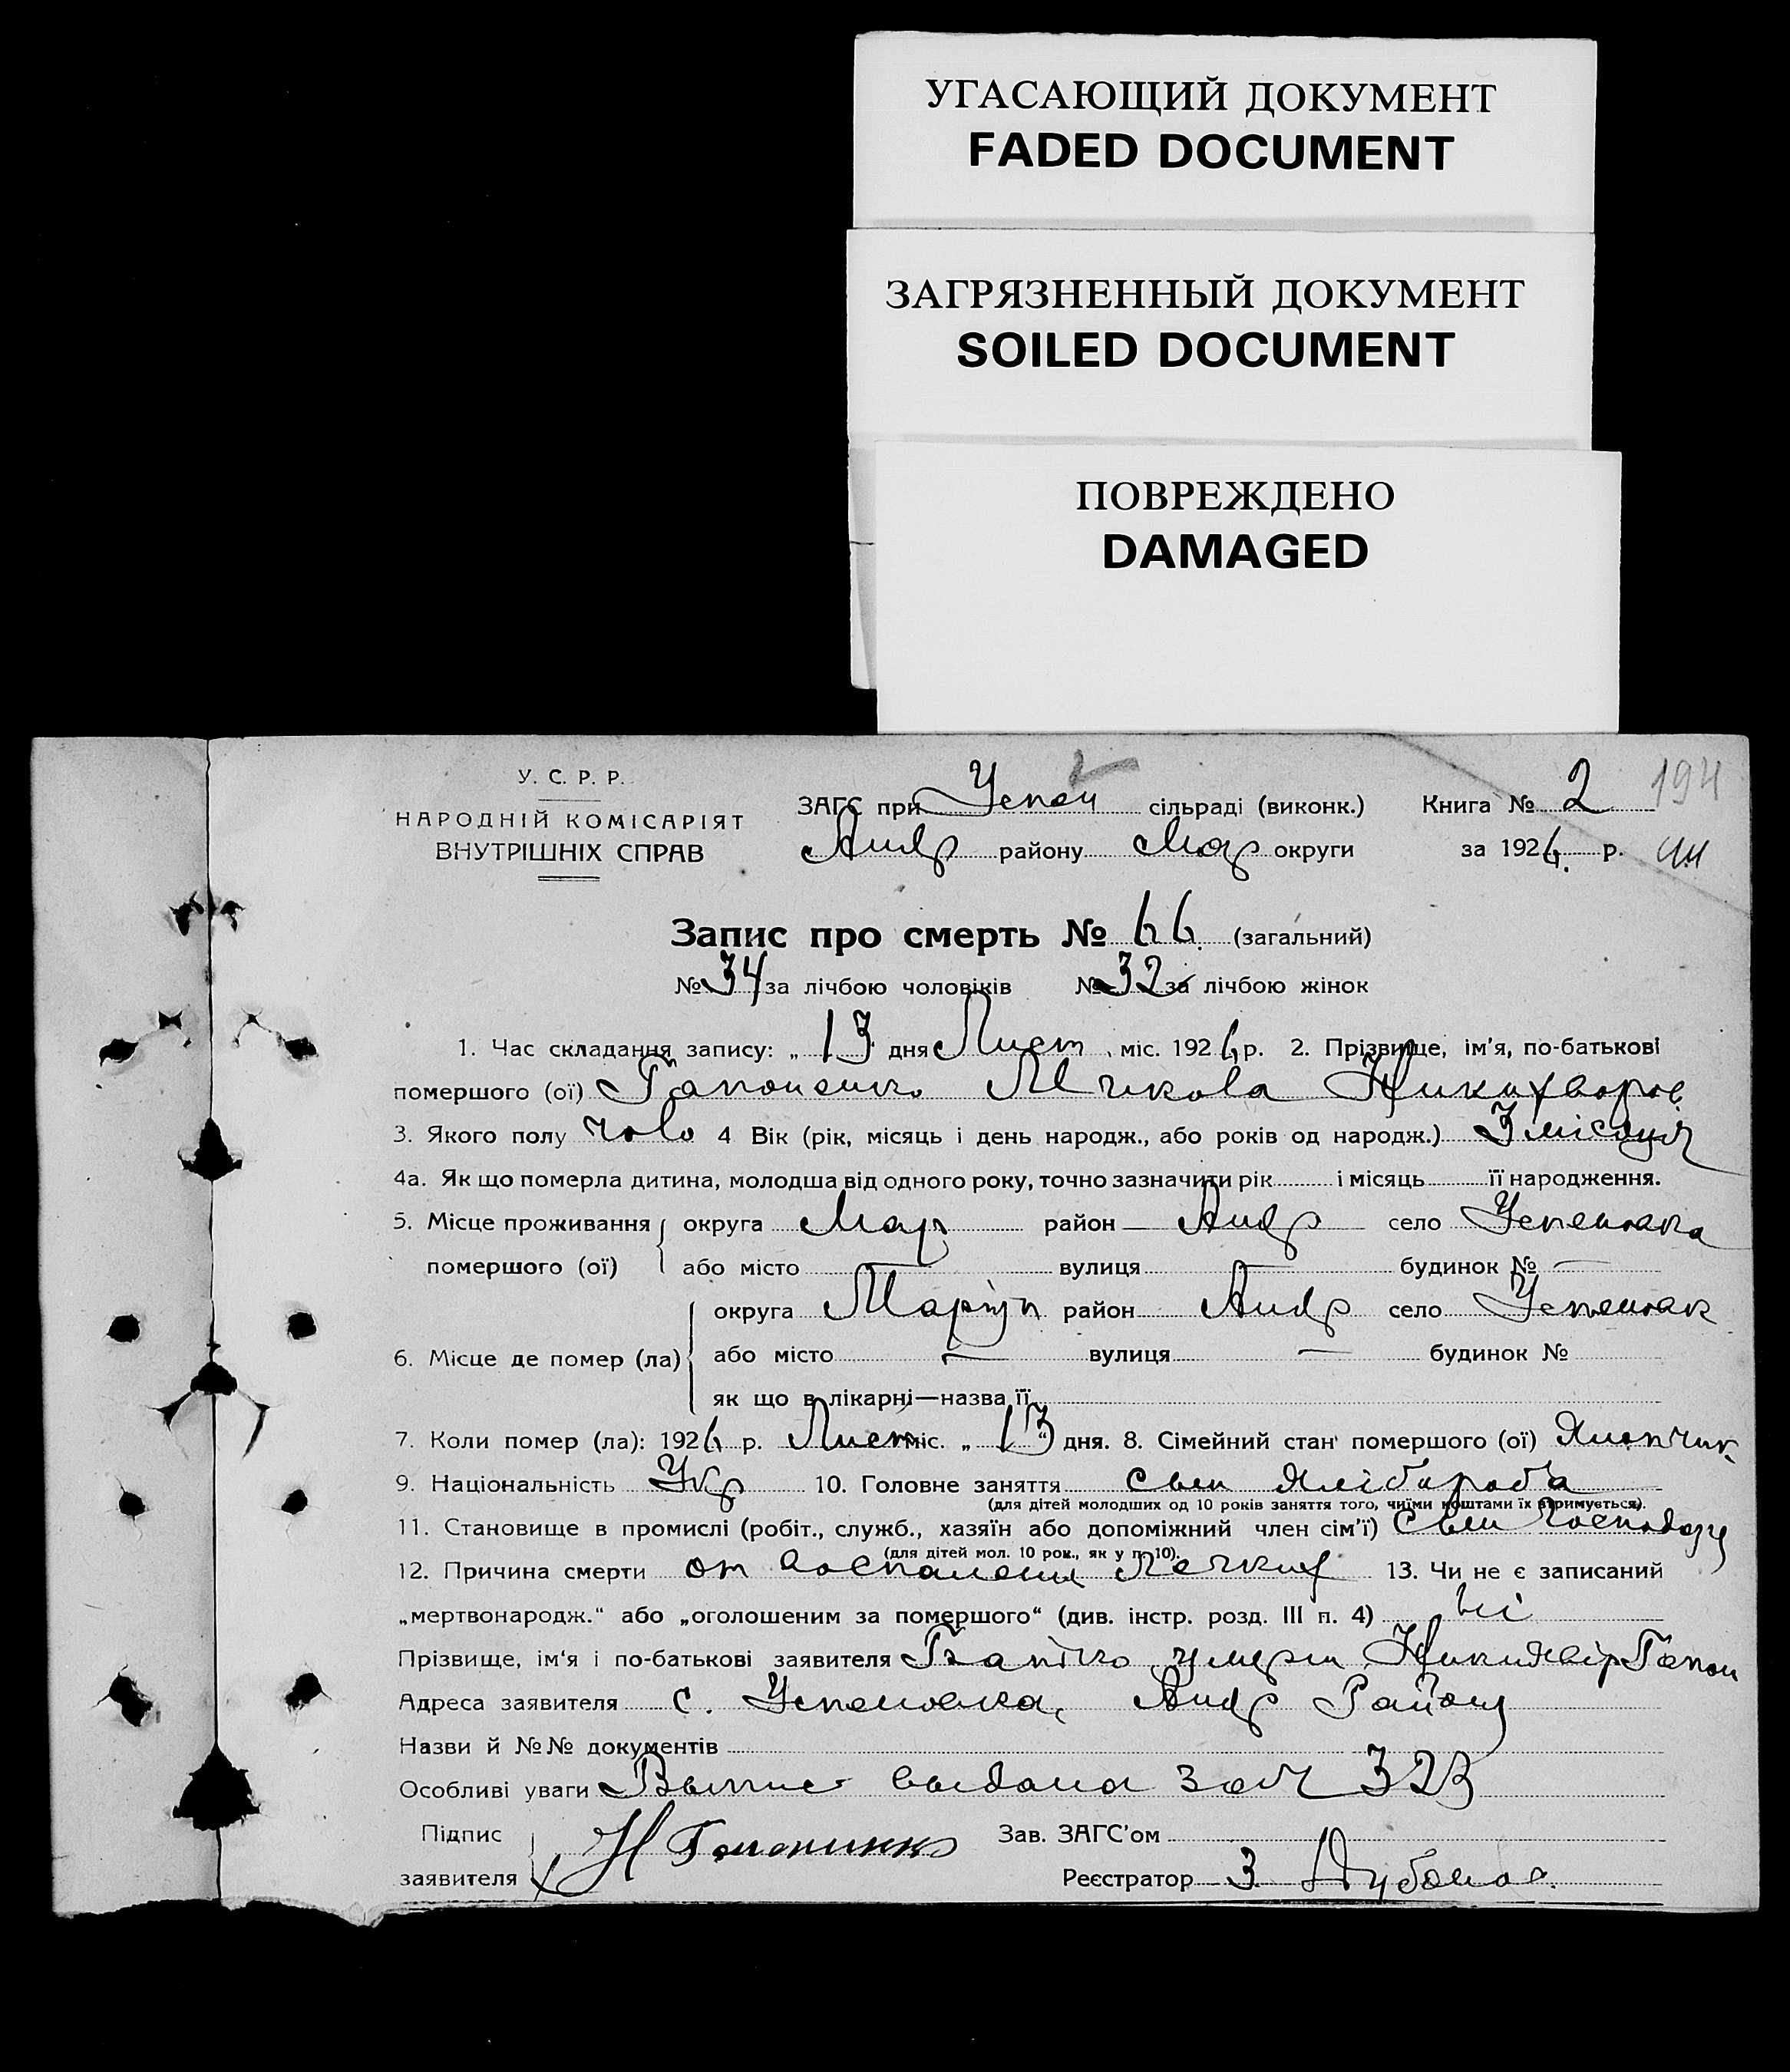 УГАСАЮЩИЙ ДОКУМЕНТ
FADED DOCUMENT
ЗАГРЯЗНЕННЫЙ ДОКУМЕНТ
SOILED DOCUMENT
ПОВРЕЖДЕНО
DAMAGED
У. С. Р. Р.
НАРОДНІЙ КОМІСАРІЯТ
ВНУТРІШНІХ СПРАВ
ЗАГС при Успен сільраді (виконк.) Книга № 2 194
Андр району Мар округи за 1926 р.
Запис про смерть № 66 (загальний)
№ 34 за лічбою чоловіків № 32 за лічбою жінок
1. Час складання запису: „ 13 дня Лист міс. 1926 р. 2. Прізвище, ім'я, по-батькові
помершого (ої) Гапоненко Микола Никифоров
3. Якого полу чоло 4 Вік (рік, місяць і день народж., або років од народж.) 3 місяця
4а. Як що померла дитина, молодша від одного року, точно зазначити рік і місяць її народження.
5. Місце проживання помершого (ої) округа Мар район Андр село Успеновка
або місто вулиця будинок № —
6. Місце де помер (ла) округа Маріуп район Андр село Успеновк
або місто — вулиця — будинок №
як що в лікарні—назва її
7. Коли помер (ла): 1926 р. Лист міс. „ 13 “ дня. 8. Сімейний стан помершого (ої)
9. Національність Укр 10. Головне заняття сын хлібороба
(для дітей молодших од 10 років заняття того, чиїми коштами їх втримується).
11. Становище в промислі (робіт., служб., хазяїн або допоміжний член сім'ї) сын
(для дітей мол. 10 рок., як у п. 10).
12. Причина смерти от воспалени Легких 13. Чи не є записаний
„мертвонародж.“ або „оголошеним за помершого“ (див. інстр. розд. III п. 4) ні
Прізвище, ім'я і по-батькові заявителя Батько умерш Гапон
Адреса заявителя с. Успеновка, Андр Району
Назви й №№ документів
Особливі уваги Выпись выдана за № 323
Підпис заявителя Н Гапонинко Зав. ЗАГС'ом
Реєстратор З.